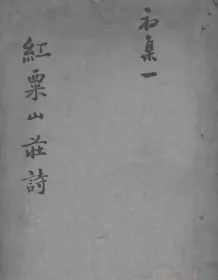 初集一
紅粟山莊詩